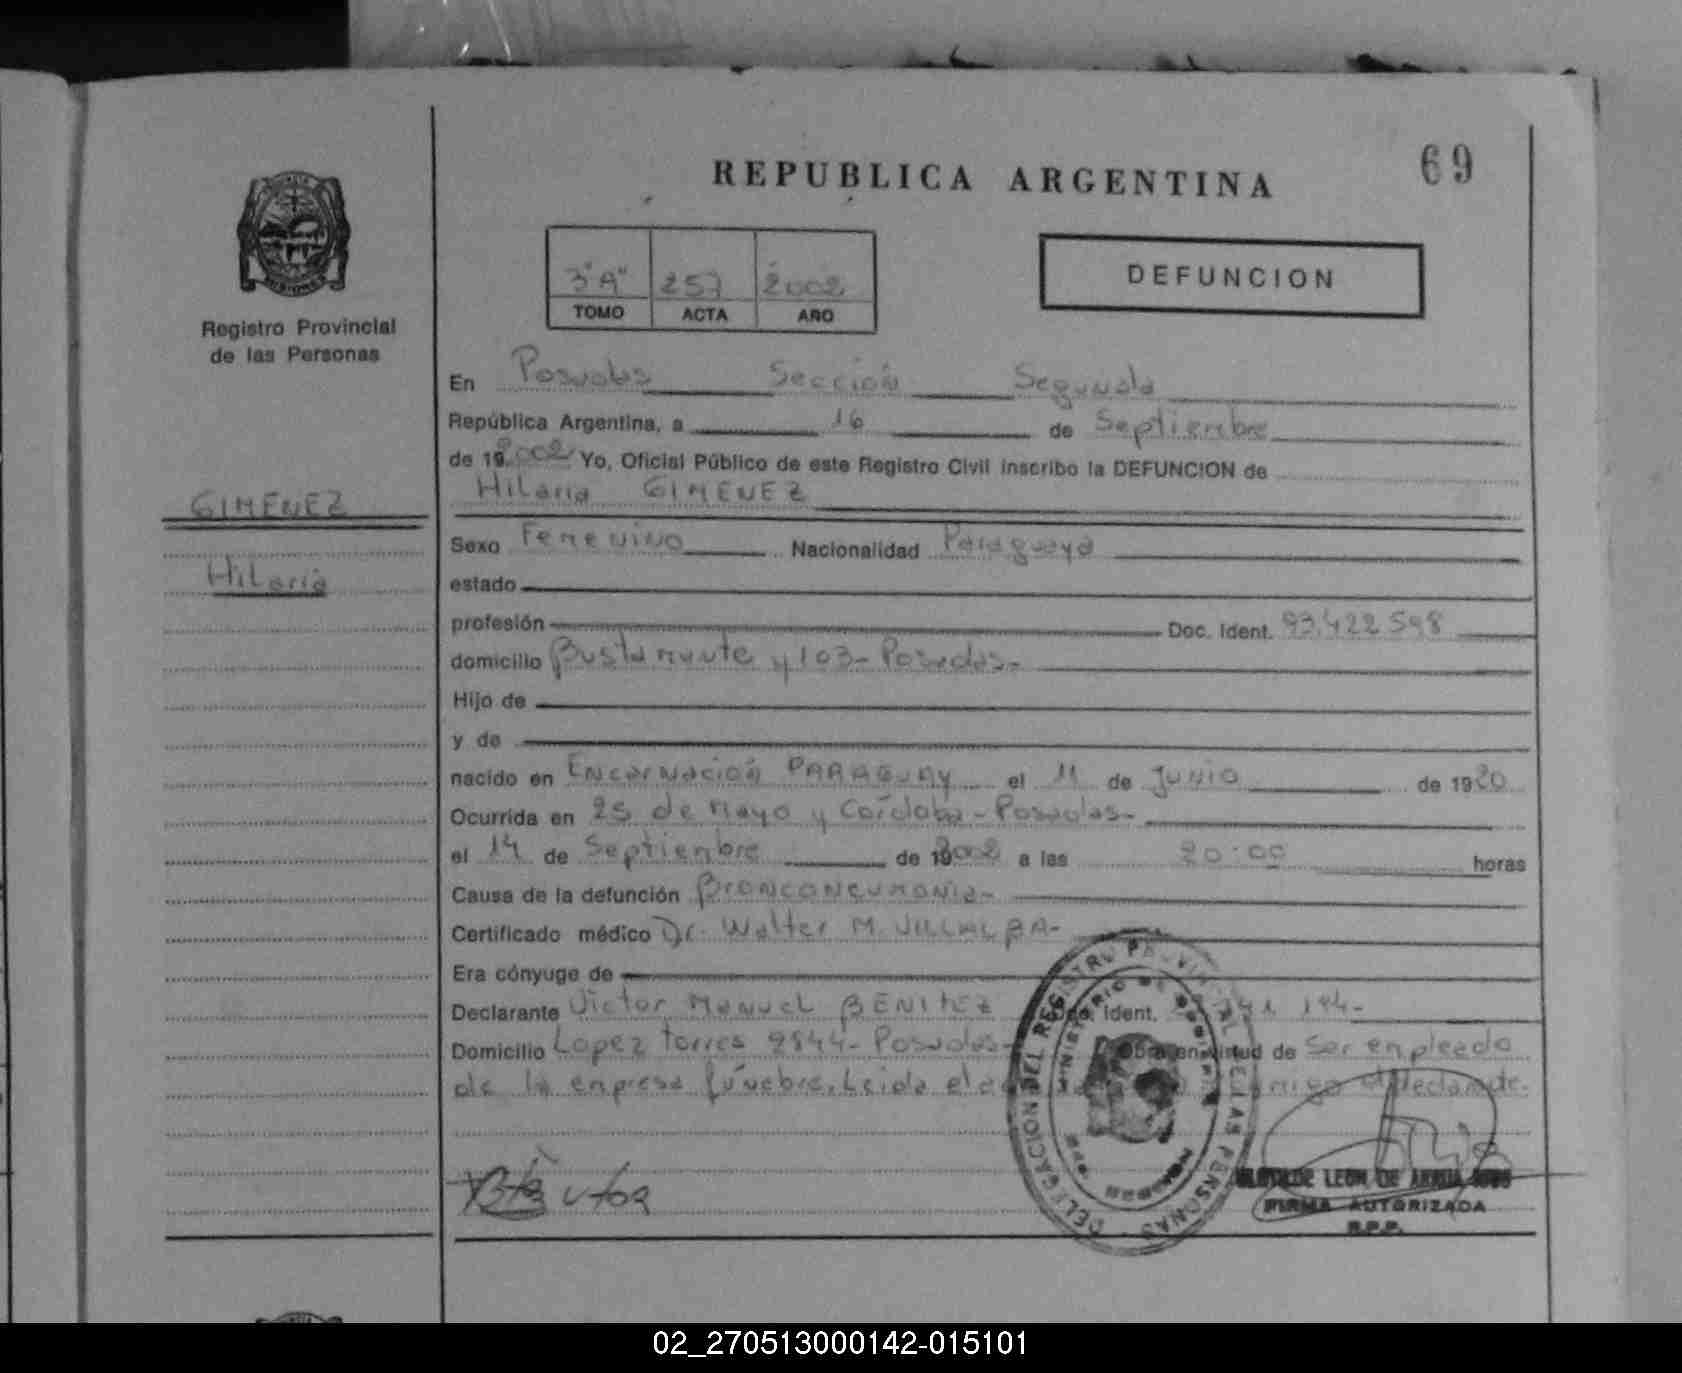 REPUBLICA ARGENTINA
69
Registro Provincial
de las Personas
3º "A" 257 2002
TOMO ACTA AÑO
DEFUNCION
GIMENEZ
Hilaria
En Posadas Sección Segunda
República Argentina, a 16 de Septiembre
de 19 2002 Yo, Oficial Público de este Registro Civil inscribo la DEFUNCION de
Hilaria GIMENEZ
Sexo Femenino Nacionalidad Paraguaya
estado
profesión Doc. Ident. 93.422.598
domicilio Bustamante y 103- Posadas-
Hijo de
y de
nacido en Encarnación PARAGUAY el 11 de Junio de 1920
Ocurrida en 25 de Mayo y Córdoba - Posadas-
el 14 de Septiembre de 19 2002 a las 20:00 horas
Causa de la defunción Bronconeumonia-
Certificado médico Dr. Walter M. VILLALBA-
Era cónyuge de
Declarante Victor Manuel BENITEZ Doc. Ident. 194-
Domicilio Lopez Torres 2844- Posadas- Obra en virtud de Ser empleado
de la empresa fúnebre. Leida el conmigo el declarante.
DELEGACION DEL REGISTRO PROVINCIAL DE LAS PERSONAS
MINISTERIO DE GOBIERNO
LEON DE
FIRMA AUTORIZADA
R.P.P.
02_270513000142-015101